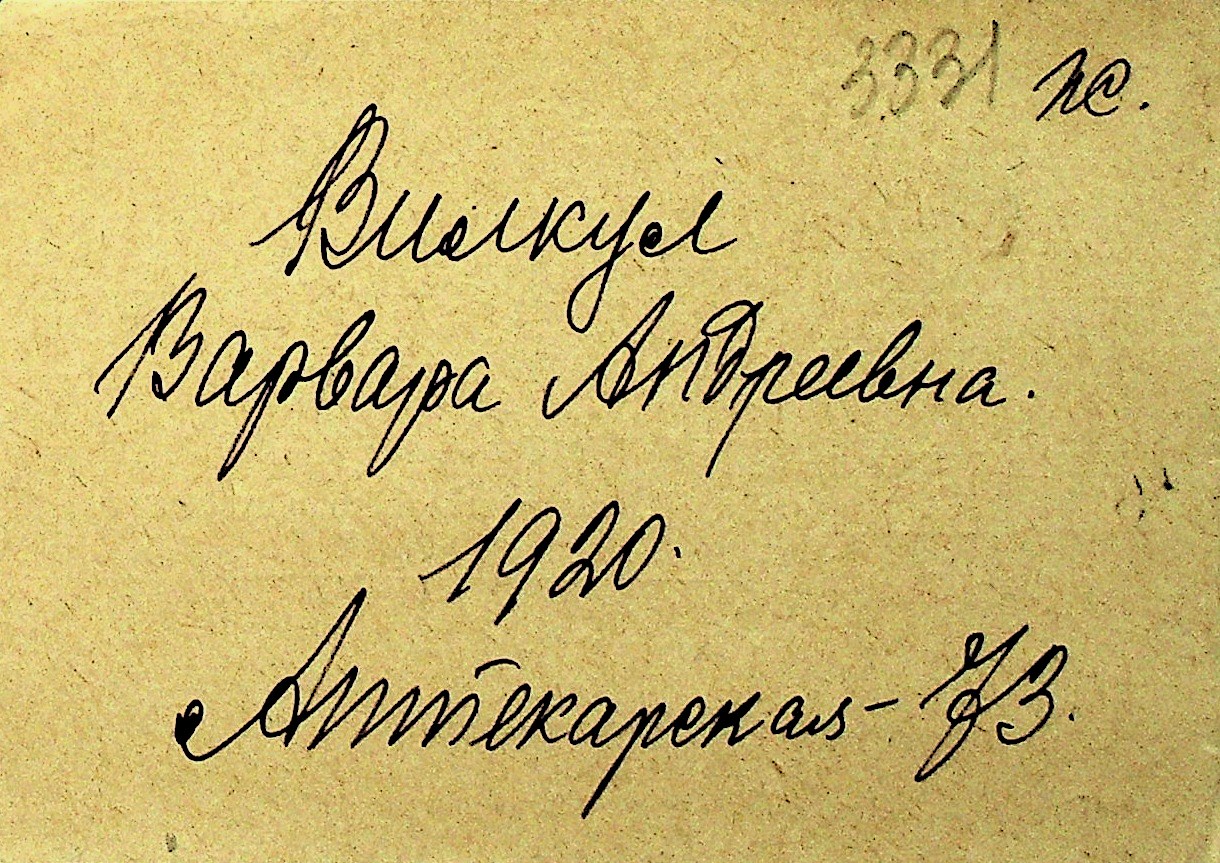 3331 пс.
Вилкул
Варвара Андреевна.
1920.
Аптекарская - 73.